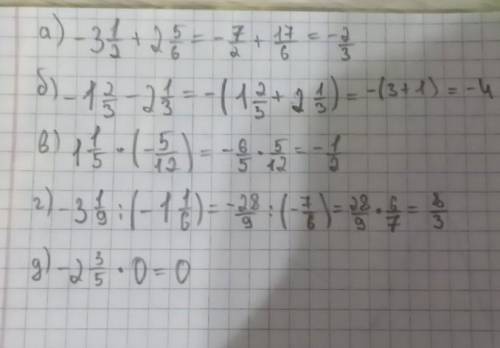 а) -3 1/2 + 2 5/6 = -7/2 + 17/6 = -2/3
б) -1 2/3 - 2 1/3 = -(1 2/3 + 2 1/3) = -(3+1) = -4
в) 1 1/5 · (-5/12) = -6/5 · 5/12 = -1/2
г) -3 1/9 : (-1 1/6) = -28/9 : (-7/6) = 28/9 · 6/7 = 8/3
д) -2 3/5 · 0 = 0